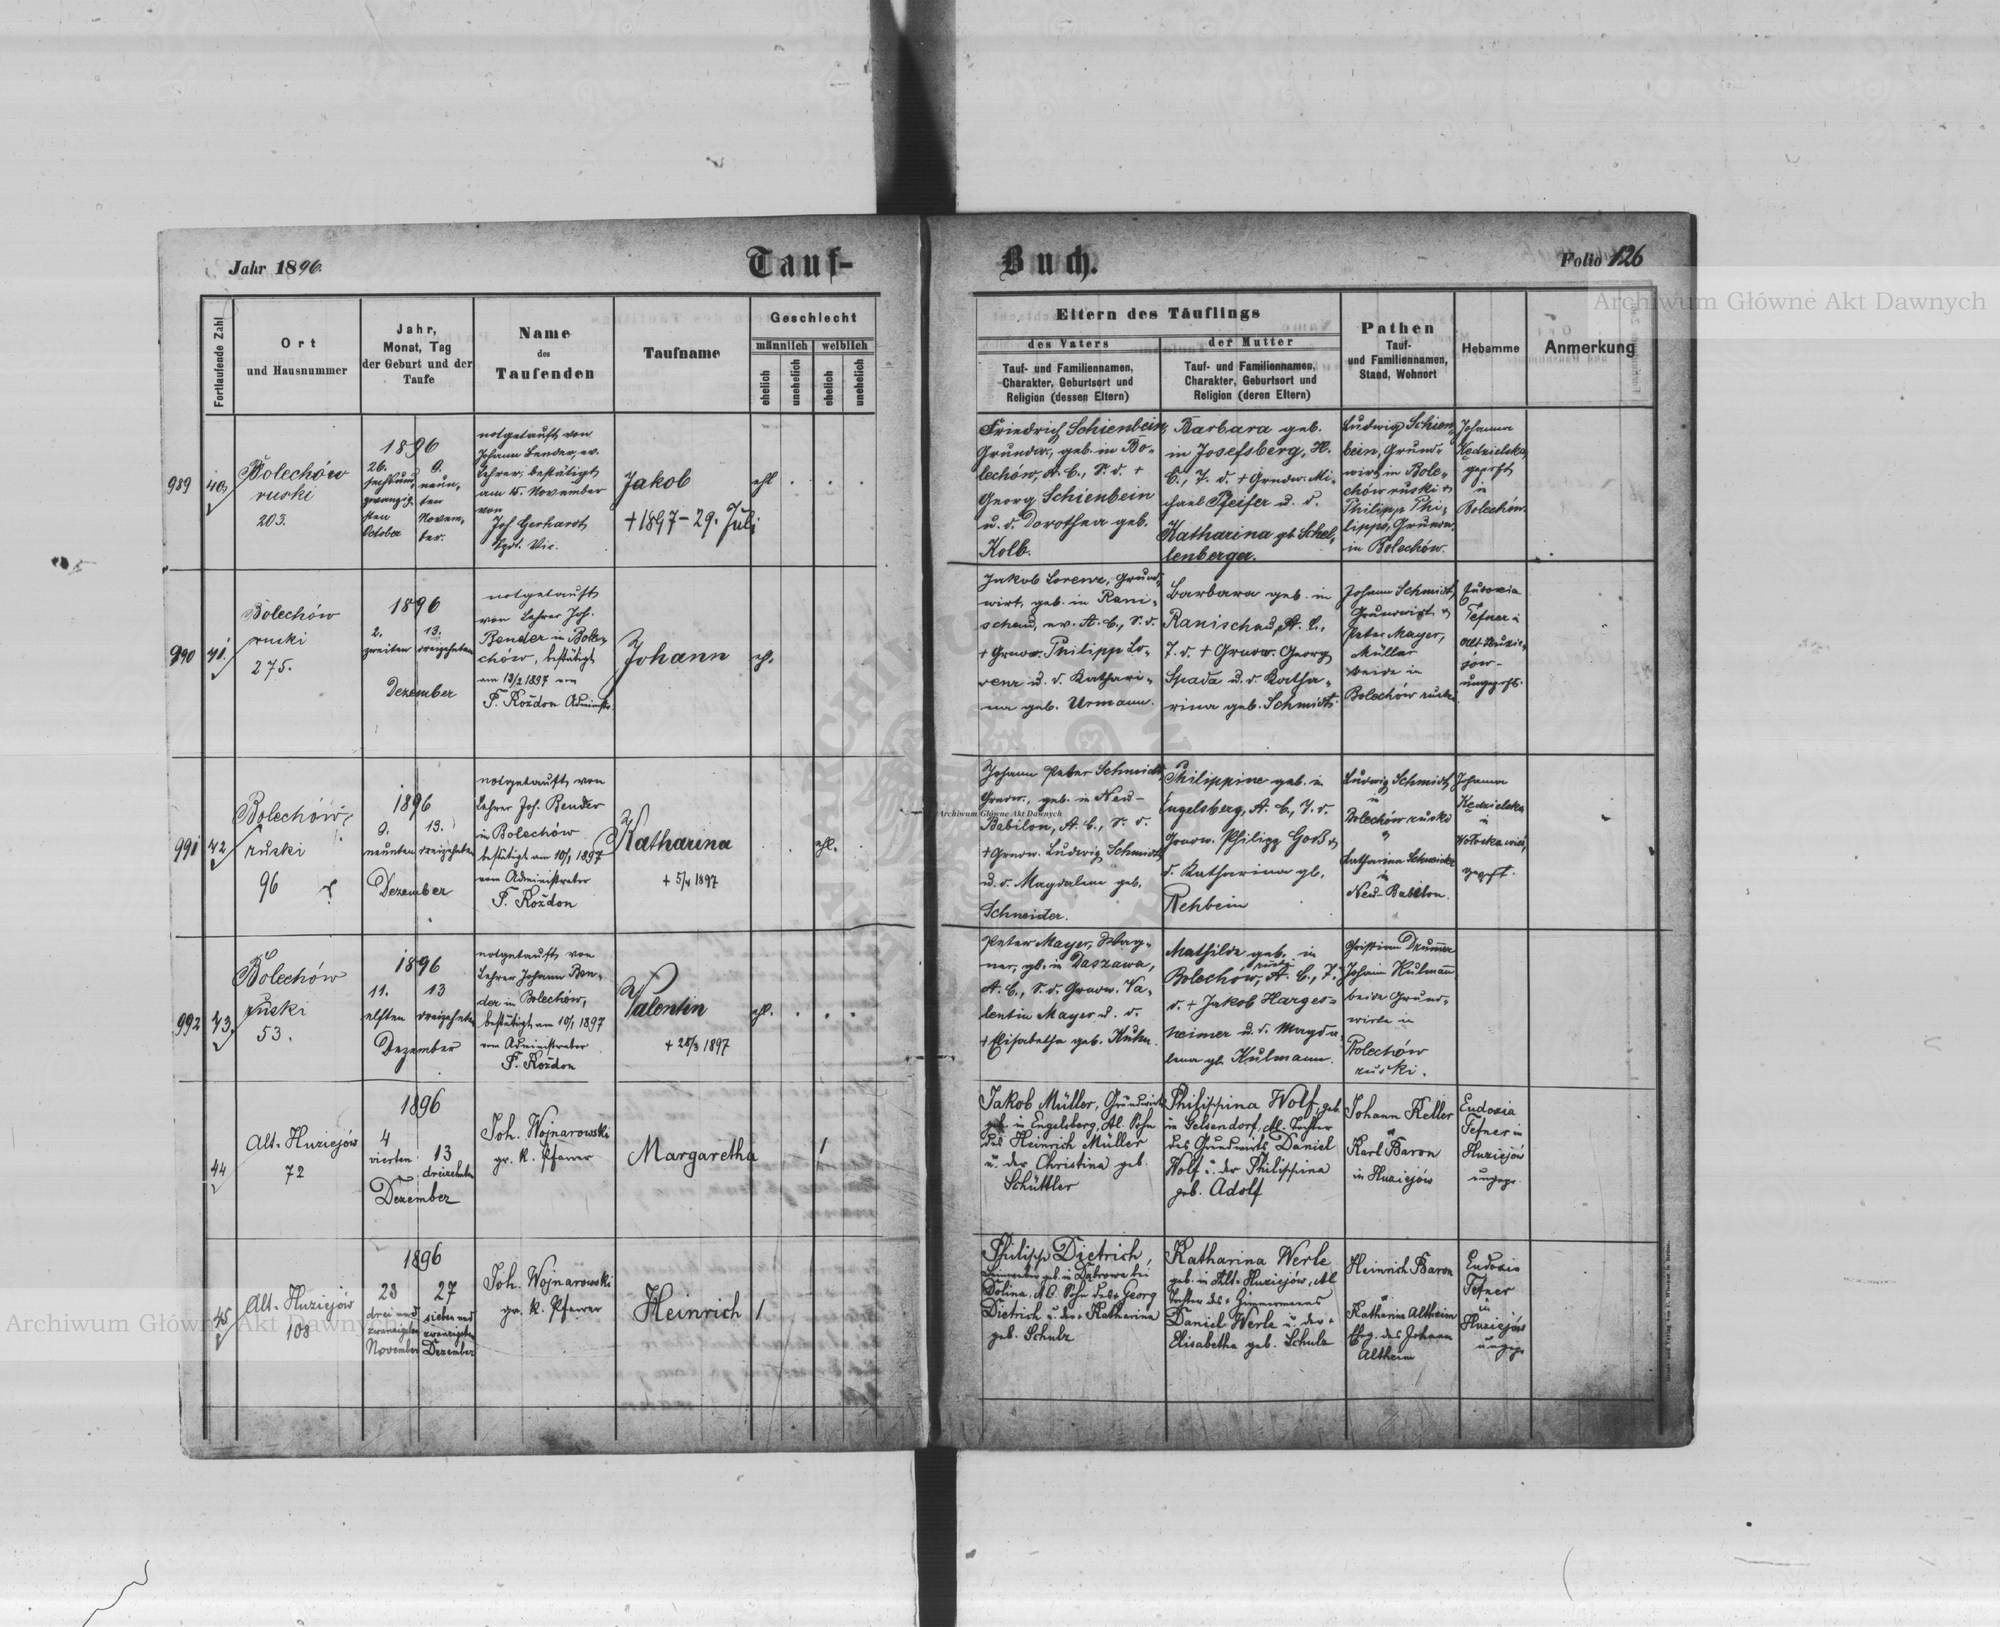 Jahr 1896.
Tauf-
Buch.
Folio 126
Fortlaufende Zahl
Ort
und Hausnummer
Jahr,
Monat, Tag
der Geburt und der
Taufe
Name
des
Taufenden
Taufname
Geschlecht
männlich
weiblich
ehelich
unehelich
ehelich
unehelich
Eltern des Täuflings
des Vaters
der Mutter
Tauf- und Familiennamen,
Charakter, Geburtsort und
Religion (dessen Eltern)
Tauf- und Familiennamen,
Charakter, Geburtsort und
Religion (deren Eltern)
Pathen
Tauf-
und Familiennamen,
Stand, Wohnort
Hebamme
Anmerkung
989
40
Bolechów
ruski
203.
1896
26.
9.
October
notgetauft von
Johann Bender, ev.
Lehrer, bestätigt
am 15. November
von
Joh Gerhardt
Vic.
Jakob
+ 1897 - 29. Juli
ehl
Friedrich Schienbein,
Grundw., geb. in Bo-
lechów, A. C., S. d. +
Georg Schienbein
u. d. Dorothea geb.
Kolb.
Barbara geb.
in Josefsberg, H.
C., T. d. + Grundw. Mi-
chael Pfeifer u. d.
Katharina gb Schel-
lenberger.
Ludwig Schien-
bein, Grund-
wirt in Bole-
chów ruski &
Philipp Phi-
lipps, Grundw.
in Bolechów.
Johanna
Kędzielska
geprft
in
Bolechów.
990
41.
Bolechów
ruski
275.
1896
2.
13.
zweiten
dreizehnten
Dezember
notgetauft
von Lehrer Joh.
Bender in Bole-
chów, bestätigt
am 13/2 1897 vom
F. Koždon Administr.
Johann
eh.
Jakob Lorenz, Grund-
wirt, geb. in Rani-
schau, ev. A. C., S. d.
+ Grundw. Philipp Lo-
renz u. d. Kathari-
na geb. Urmann.
Barbara geb. in
Ranischau, A. C.,
T. d. + Grundw. Georg
Spada u. d. Katha-
rina geb. Schmidt.
Johann Schmidt,
Grundwirt &
Peter Mayer,
Müller
beide in
Bolechów ruski
Eudoxia
Tefner in
Alt Huzie-
jów -
ungeprft.
991
42
Bolechów
ruski
96
1896
9.
13.
neunten
dreizehnten
Dezember
notgetauft von
Lehrer Joh. Bender
in Bolechów
bestätigt am 10/1 1897
vom Administrator
F. Koždon
Katharina
+ 5/4 1897
ehl.
Johann Peter Schmidt
Grundw., geb. in Neu-
Babilon, A. C., S. d.
+ Grundw. Ludwig Schmidt
u. d. Magdalena geb.
Schneider.
Philippine geb. in
Engelsberg, A. C., T. d.
Grundw. Philipp Goß &
d. Katharina gb.
Rehbein
Ludwig Schmidt,
in
Bolechów ruski
&
Katharina Schneider
in
Neu-Babilon.
Johanna
Kędzielska
in
geprft.
992
43.
Bolechów
ruski
53.
1896
11.
13
elften
dreizehnten
Dezember
notgetauft von
Lehrer Johann Ben-
der in Bolechów,
bestätigt am 10/1 1897
vom Administrator
F. Koždon
Valentin
+ 28/3 1897
ehl.
Peter Mayer, Wag-
ner, gb. in Daszawa,
A. C., S. d. Grundw. Va-
lentin Mayer u. d.
+ Elisabetha geb. Kuhn.
Mathilde geb. in
Bolechów ruski, A. C., T.
d. + Jakob Harges-
heimer u. d. Magda-
lena gb. Kulmann.
Christian Drummer
Johann Kulmann
beide Grund-
wirte in
Bolechów
ruski.
44
Alt-Huziejów
72
1896
4
vierten
13
dreizehnten
Dezember
Joh. Wojnarowski
gr. k. Pfarrer
Margaretha
1
Jakob Müller, Grundwirt
geb. in Engelsberg, AC. Sohn
des Heinrich Müller
u. der Christina geb.
Schüttler
Philippina Wolf, geb.
in Gelsendorf, AC. Tochter
des Grundwirts Daniel
Wolf u. der Philippina
geb. Adolf
Johann Keller
u
Karl Baron
in Huziejów
Eudoxia
Tefner in
Huziejów
ungepr.
45
Alt-Huziejów
108
1896
23
27
drei und
zwanzigsten
November
sieben und
zwanzigsten
Dezember
Joh. Wojnarowski
gr. k. Pfarrer
Heinrich
1
Philipp Dietrich,
geb. in Dąbrowa bei
Dolina, AC. Sohn des + Georg
Dietrich u. der + Katharina
geb. Schulz
Katharina Werle
geb. in Alt-Huziejów, AC
Tochter des + Zimmermanns
Daniel Werle u. der +
Elisabetha geb. Schulz
Heinrich Baron
u
Katharina Altheim
Ehg. des Johann
Altheim
Eudoxia
Tefner
in
Huziejów
ungepr
Archiwum Główne Akt Dawnych
Archiwum Główne Akt Dawnych
Archiwum Główne Akt Dawnych